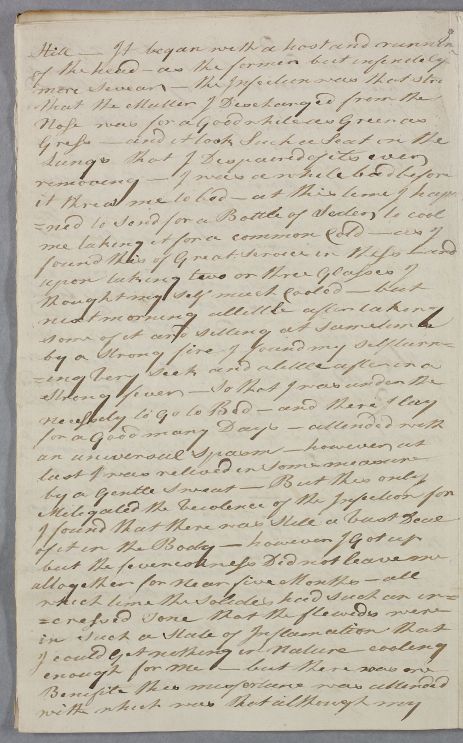 Hill — It began with a host and runnin
of the head — as the former but infinitely
more severe — the Infection was that stro
that the Matter I Descharged from the
Nose was for a Good while as Green as
Grass — and it took Such a Seat on the
Lungs that I Despaired of its ever
removing — I was a while bad before
it threw me to bed — at this time I hap
=ned to Send for a Bottle of Seder to cool
me taking it for a common Cold — as I
found this of Great Service in this — and
upon taking two or three Glasses I
thought my self much Cooled — but
next morning alettle after taking
some of it and setting at same time
by a Strong fire I found my self turn=
=ing Very Seek and alettle after in a
Strong fever — So that I was under the
necessety to Go to Bed — and there I lay
for a Good many Days — attended with
an universal Spasm — however at
last I was relived in some measure
by a Gentle Sweat — But this only
Metegated the Veolence of the Infection for
I found that there was Still a vast Deal
of it in the Body — however I Got up
but the feverishness Did not leave me
altogether for near five Months — all
which time the Solides had such an in=
=creased Tone that the flewids were
in Such a State of Inflamation that
I could Get nothing in Nature cooling
enough for me — but there was one
Benifite this misfortune was attended
with which was that although my